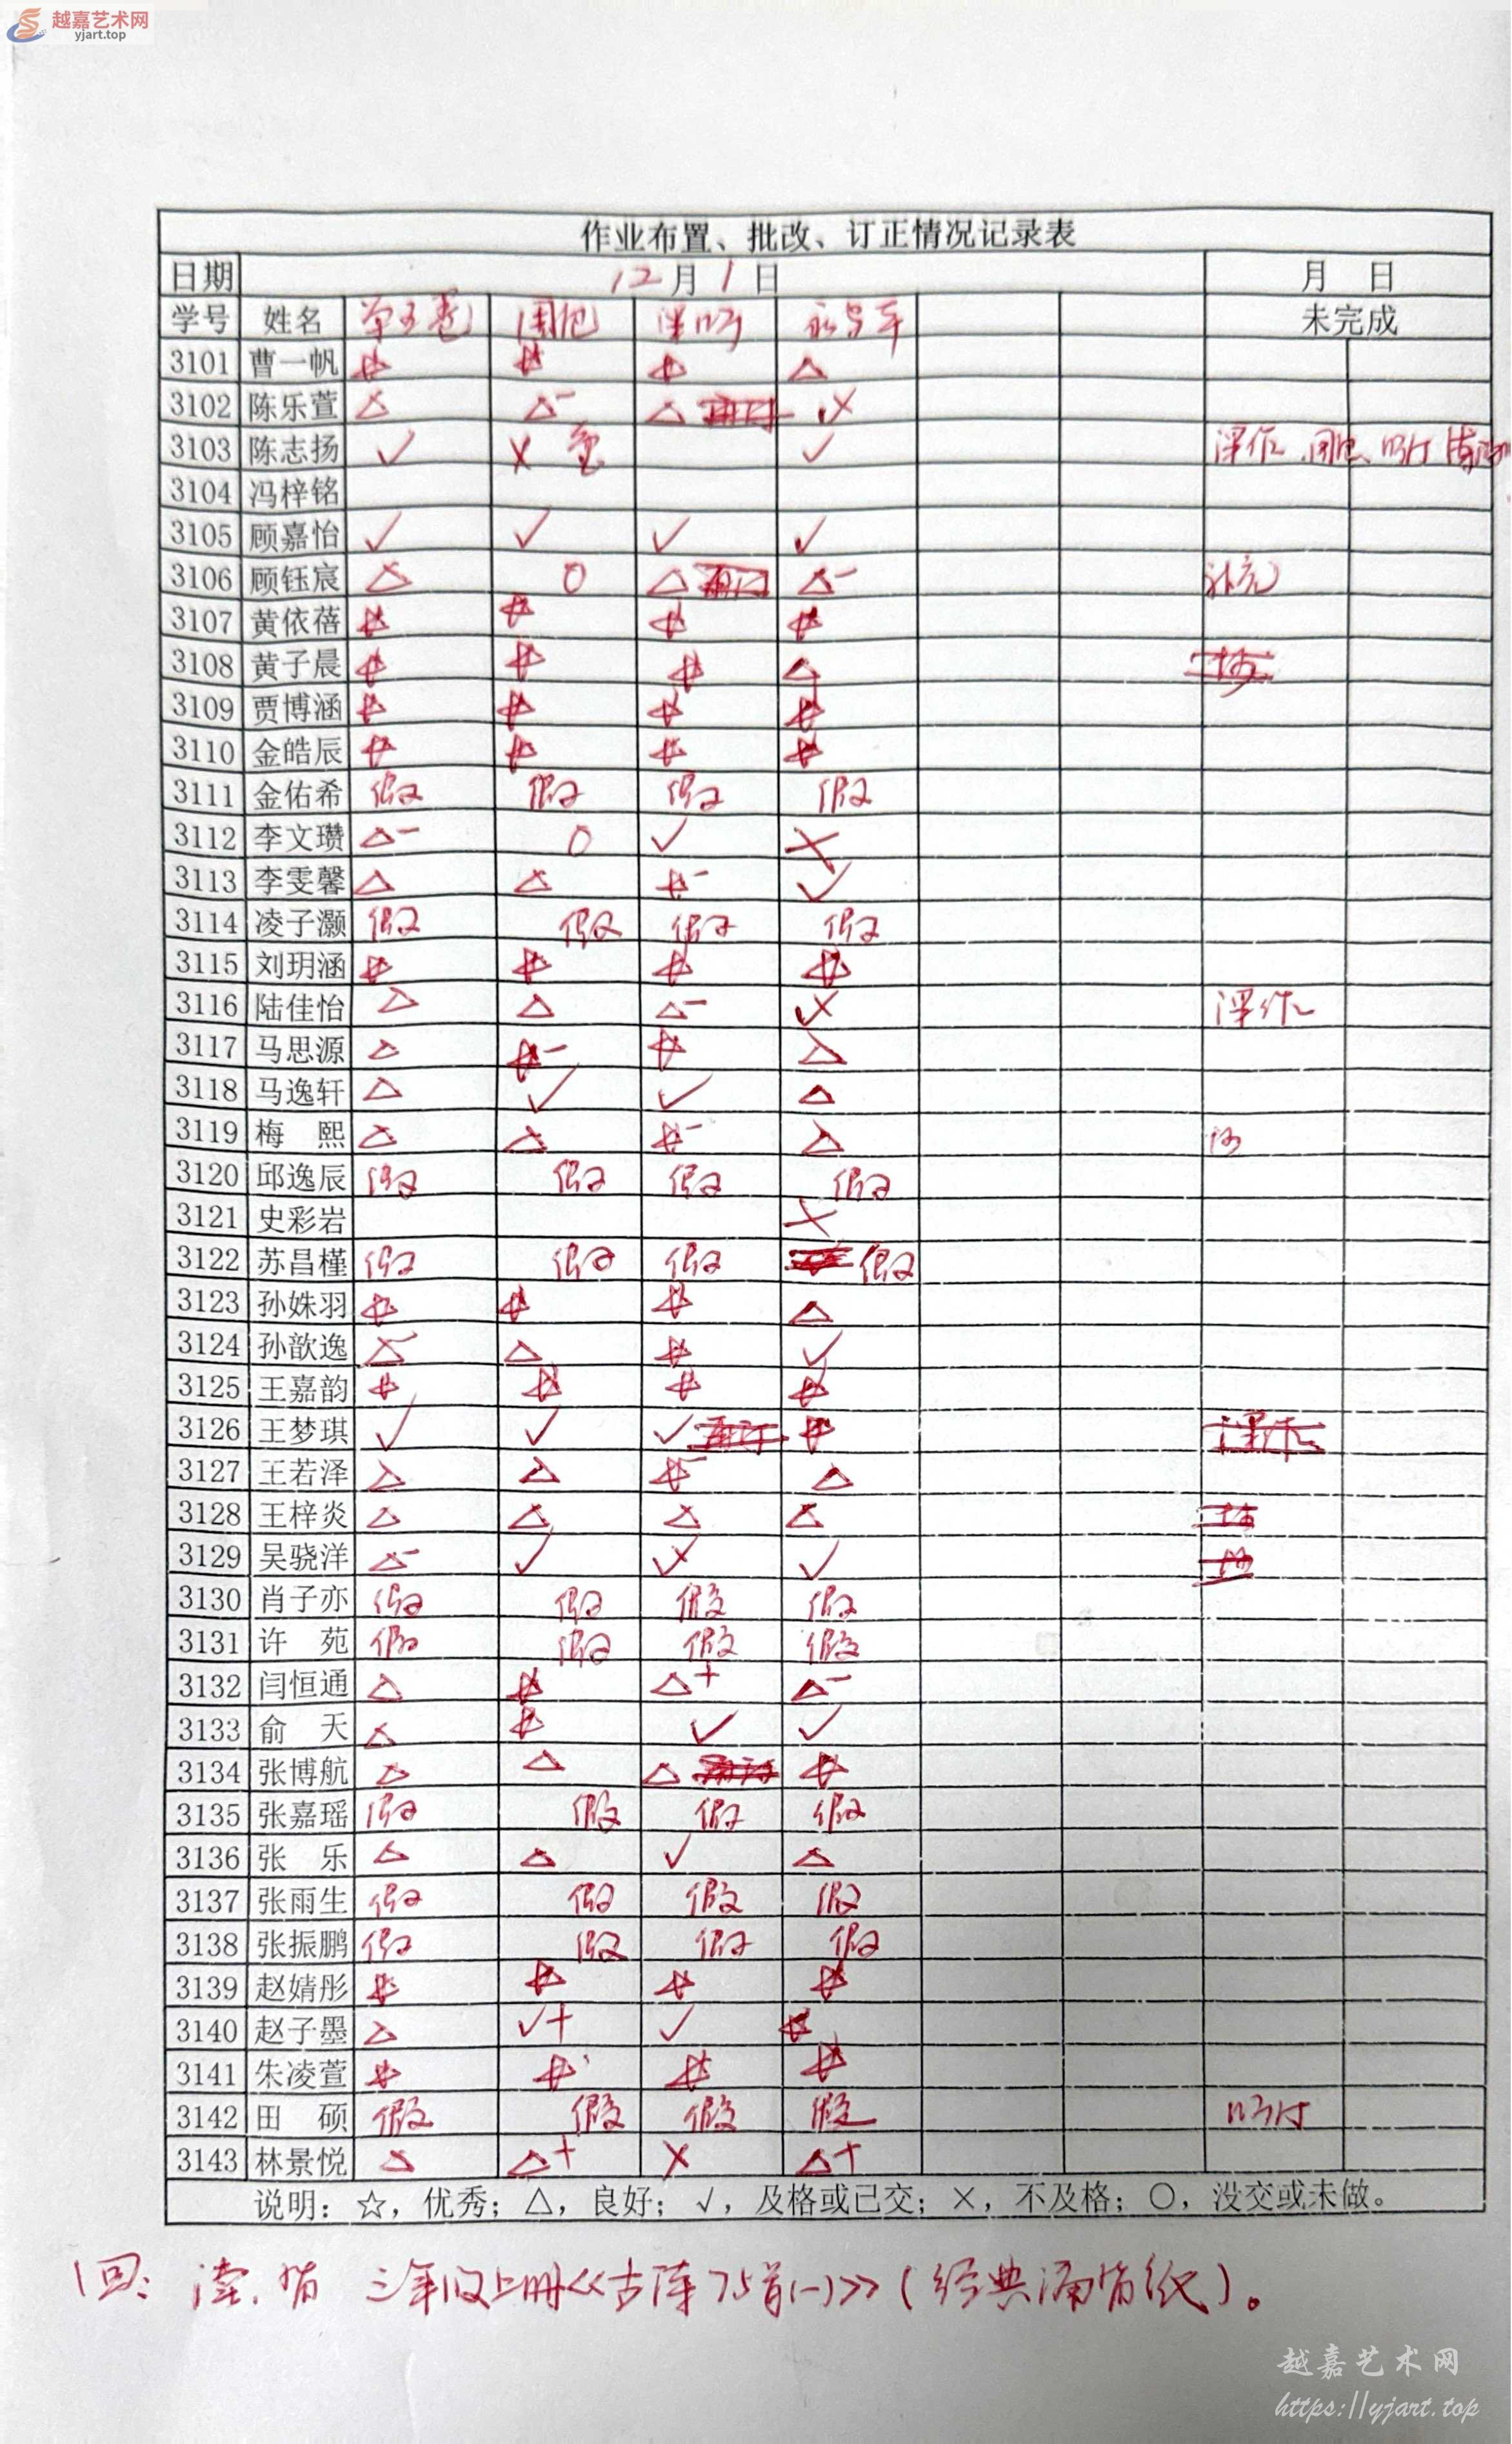 越嘉艺术网
yjart.top
作业布置、批改、订正情况记录表
日期 12月1日 月 日
学号 姓名 单五卷 周四 课 未完成
3101 曹一帆 ☆ ☆ ☆ △
3102 陈乐萱 △ △- △ ✓ ×
3103 陈志扬 ✓ × ✓ 课作、
3104 冯梓铭
3105 顾嘉怡 ✓ ✓ ✓ ✓
3106 顾钰宸 △ ○ △ △- 补充
3107 黄依蓓 ☆ ☆ ☆ ☆
3108 黄子晨 ☆ ☆ ☆ △
3109 贾博涵 ☆ ☆ ☆ ☆
3110 金皓辰 ☆ ☆ ☆ ☆
3111 金佑希 假 假 假 假
3112 李文瓒 △- ○ ✓ ×
3113 李雯馨 △ △ ☆- ✓
3114 凌子灏 假 假 假 假
3115 刘玥涵 ☆ ☆ ☆ ☆
3116 陆佳怡 △ △ △- ✓× 课作
3117 马思源 △ ☆- ☆ △
3118 马逸轩 △ ✓ ✓ △
3119 梅 熙 △ △ ☆- △
3120 邱逸辰 假 假 假 假
3121 史彩岩 ×
3122 苏昌槿 假 假 假 假
3123 孙姝羽 ☆ ☆ ☆ △
3124 孙歆逸 △- △ ☆ ✓
3125 王嘉韵 ☆ ☆ ☆ ☆
3126 王梦琪 ✓ ✓ ✓ ☆ 课作
3127 王若泽 △ △ ☆- △
3128 王梓炎 △ △ △ △
3129 吴骁洋 △- ✓ ✓× ✓
3130 肖子亦 假 假 假 假
3131 许 苑 假 假 假 假
3132 闫恒通 △ ☆ △+ △-
3133 俞 天 △ ☆ ✓ ✓
3134 张博航 △ △ △ ☆
3135 张嘉瑶 假 假 假 假
3136 张 乐 △ △ ✓ △
3137 张雨生 假 假 假 假
3138 张振鹏 假 假 假 假
3139 赵婧彤 ☆ ☆ ☆ ☆
3140 赵子墨 △ ✓+ ✓ ☆
3141 朱凌萱 ☆ ☆ ☆ ☆
3142 田 硕 假 假 假 假
3143 林景悦 △ △+ × △+
说明：☆，优秀；△，良好；√，及格或已交；×，不及格；○，没交或未做。
1回: 读.背 三年级上册《古诗75首(一)》(经典诵背纸)。
越嘉艺术网
https://yjart.top